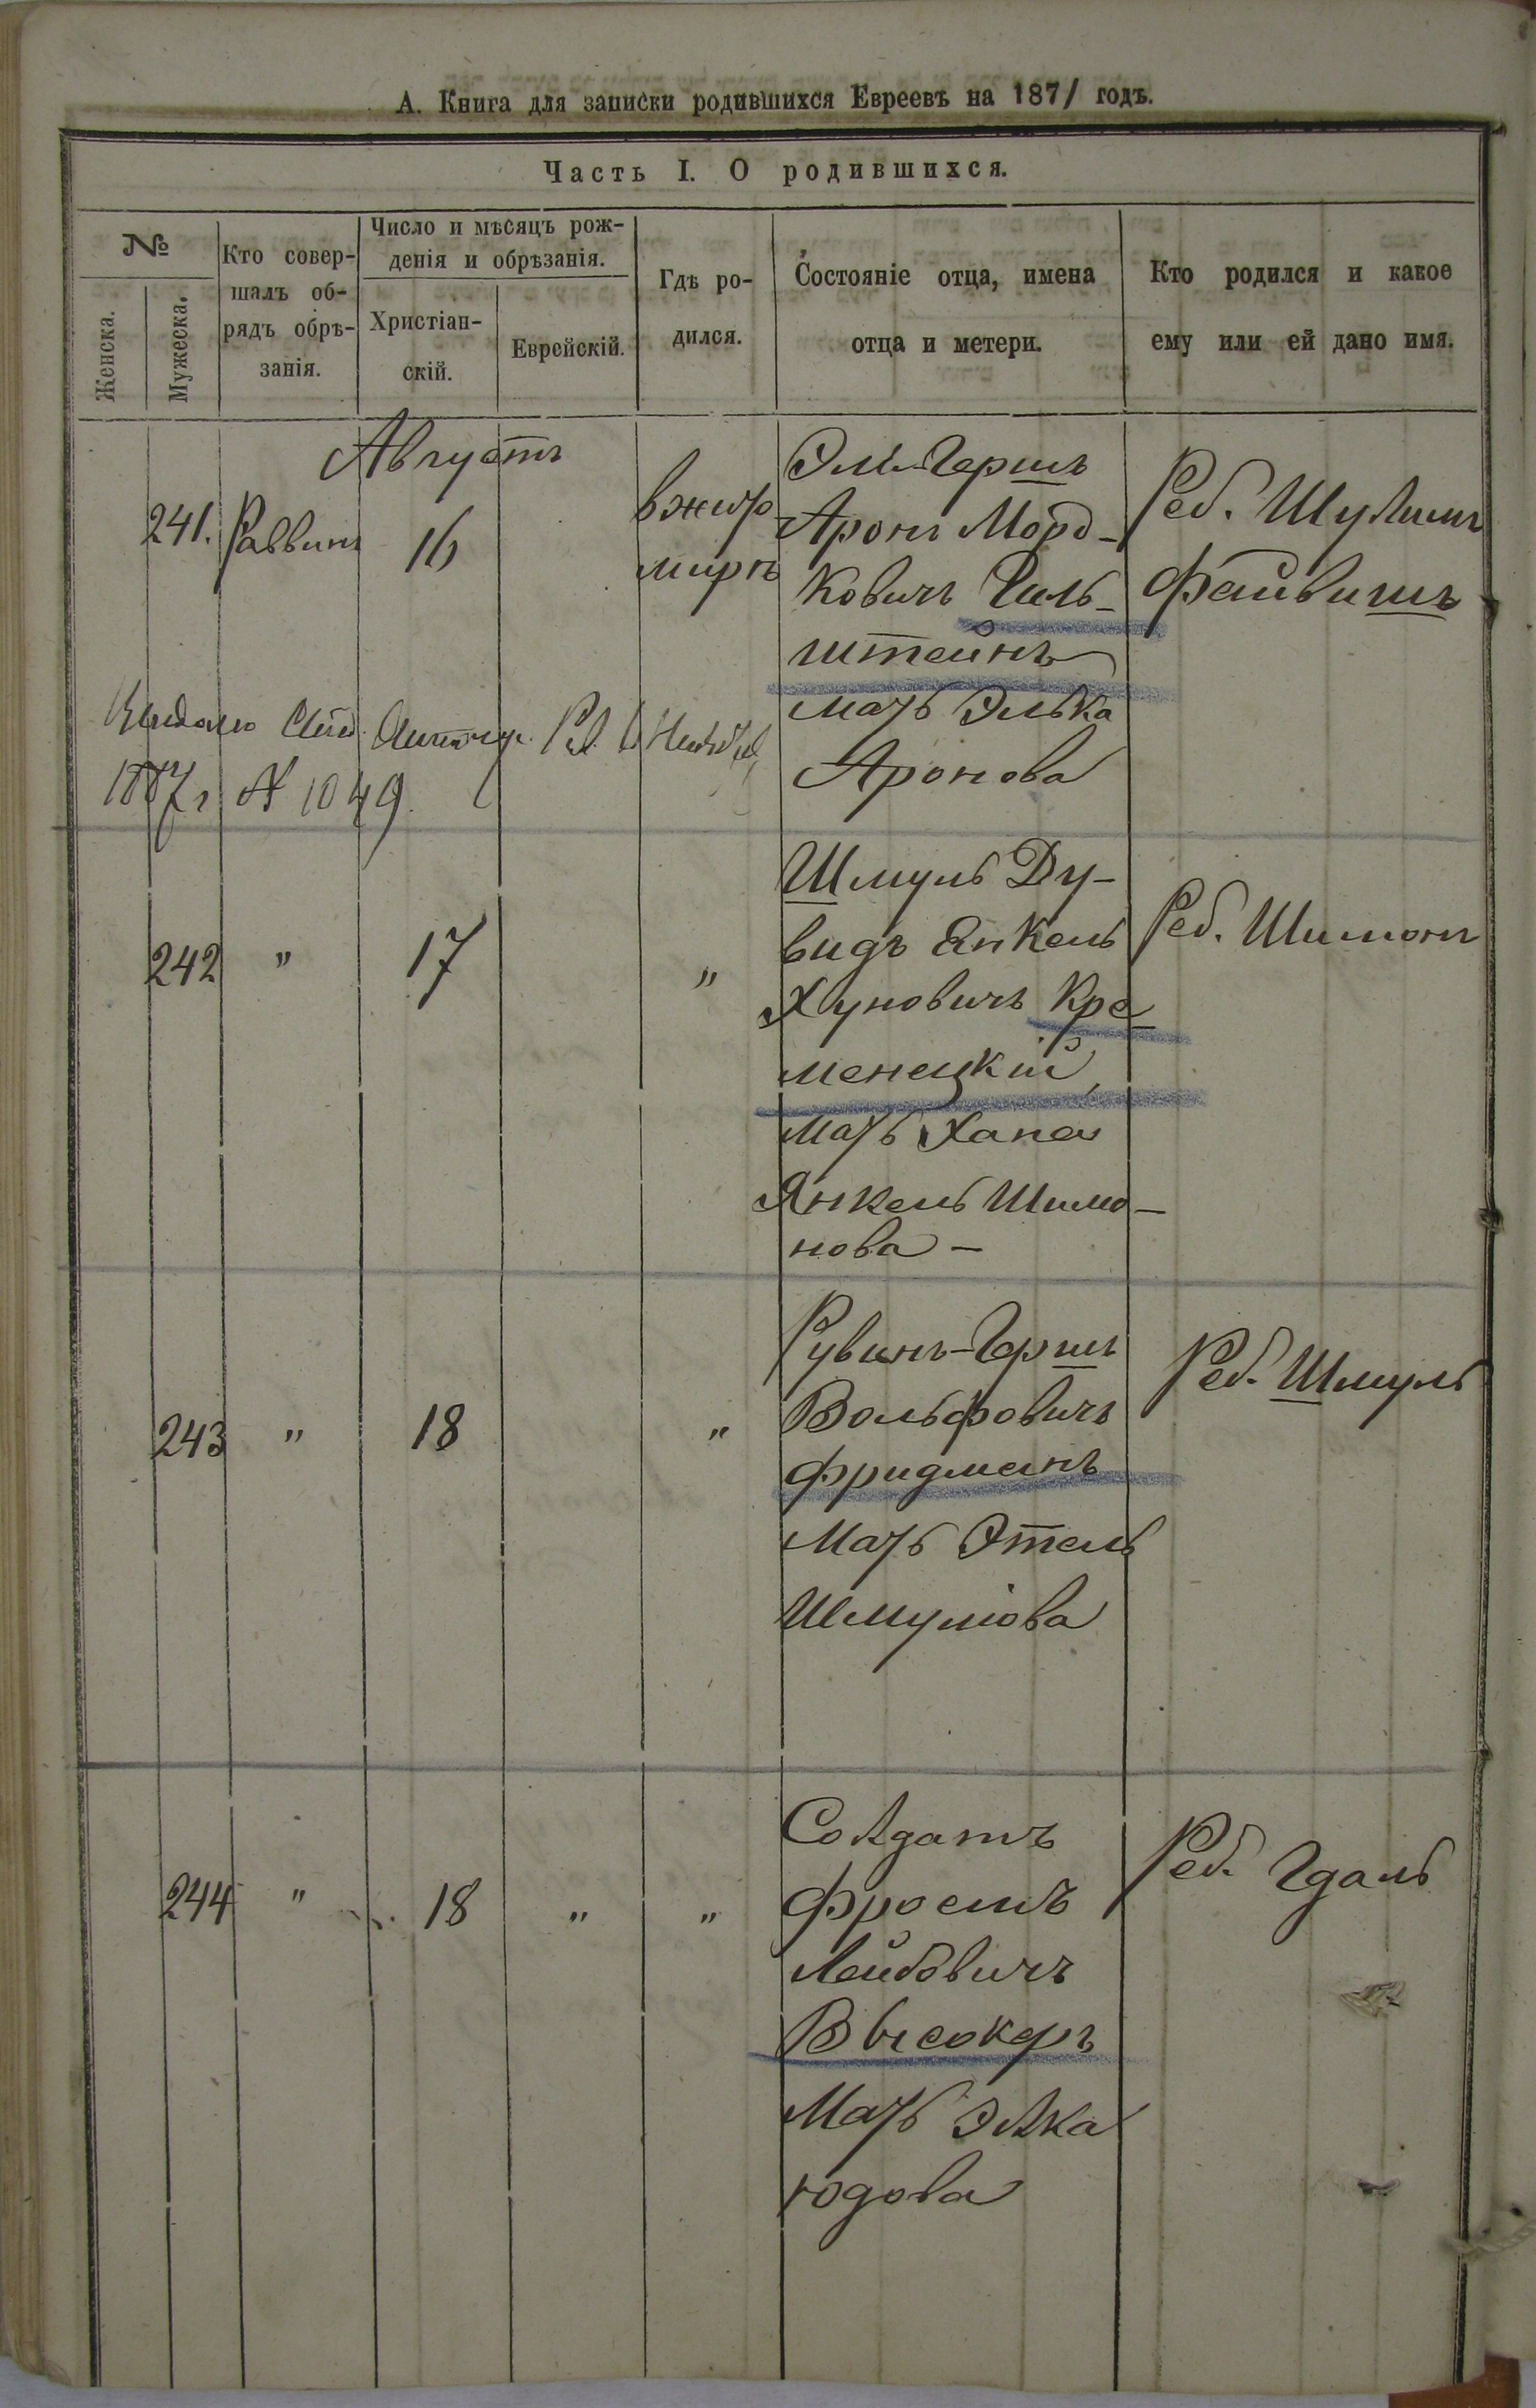 А. Книга для записки родившихся Евреевъ на 1871 годъ.
Часть I. О родившихся.
№
Женска.
Мужеска.
Кто совер-
шалъ об-
рядъ обрѣ-
занія.
Число и мѣсяцъ рож-
денія и обрѣзанія.
Христіан-
скій.
Еврейскій.
Гдѣ ро-
дился.
Состояніе отца, имена
отца и метери.
Кто родился и какое
ему или ей дано имя.
Августъ
241. Раввинъ 16
в жито
мирѣ
Эли-Гершъ
Аронъ Морд-
ковичъ Гиль-
штейнъ
мать Элька
Аронова
Реб. Шулимъ
Файвишъ
1887 г № 1049.
242 " 17 "
Шмуль Ду-
видъ Янкель
Хуновичъ Кре-
менецкій,
мать Хана
Янкель Шимо-
нова -
Реб. Шимонъ
243 " 18 "
Рувинъ-Гершъ
Вольфовичъ
Фридманъ
Мать Этель
Шмулiова
Реб. Шмуль
244 " 18 " "
Солдатъ
Фроимъ
Лейбовичъ
Высокеръ
Мать Элка
Юдова
Реб. Гдаль